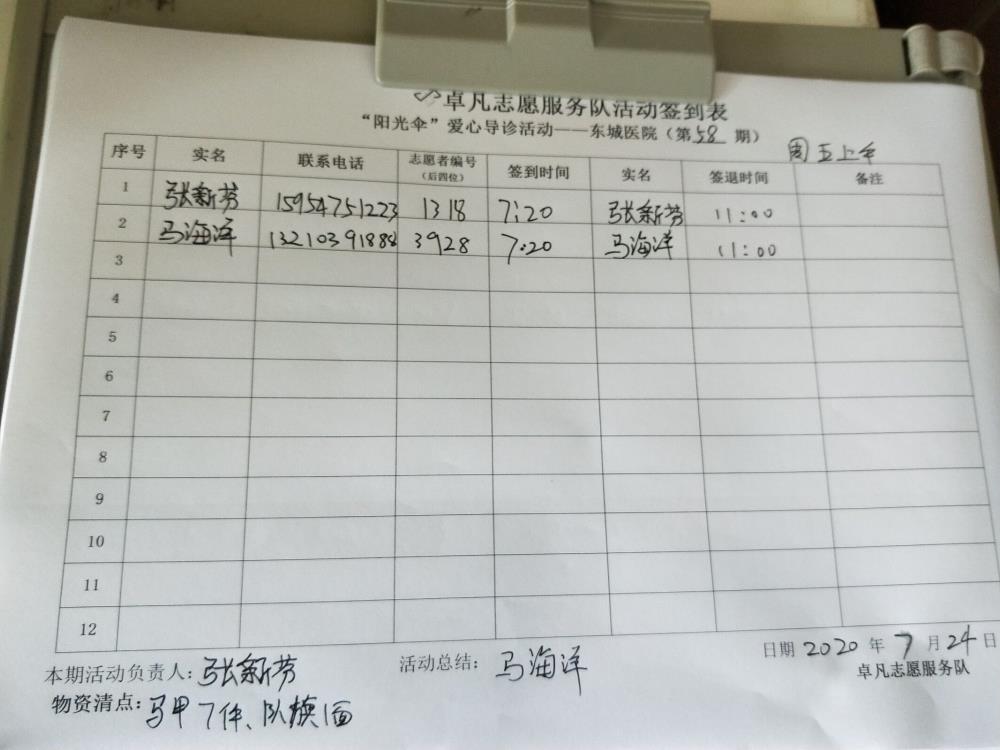 卓凡志愿服务队活动签到表
“阳光伞”爱心导诊活动——东城医院（第58期）
周五上午
序号 实名 联系电话 志愿者编号（后四位） 签到时间 实名 签退时间 备注
1 张新芳 15954751223 1318 7:20 张新芳 11:00
2 马海洋 13210391888 3928 7:20 马海洋 11:00
3
4
5
6
7
8
9
10
11
12
日期 2020 年 7 月 24 日
本期活动负责人：张新芳 活动总结：马海洋
卓凡志愿服务队
物资清点：马甲7件、队旗1面